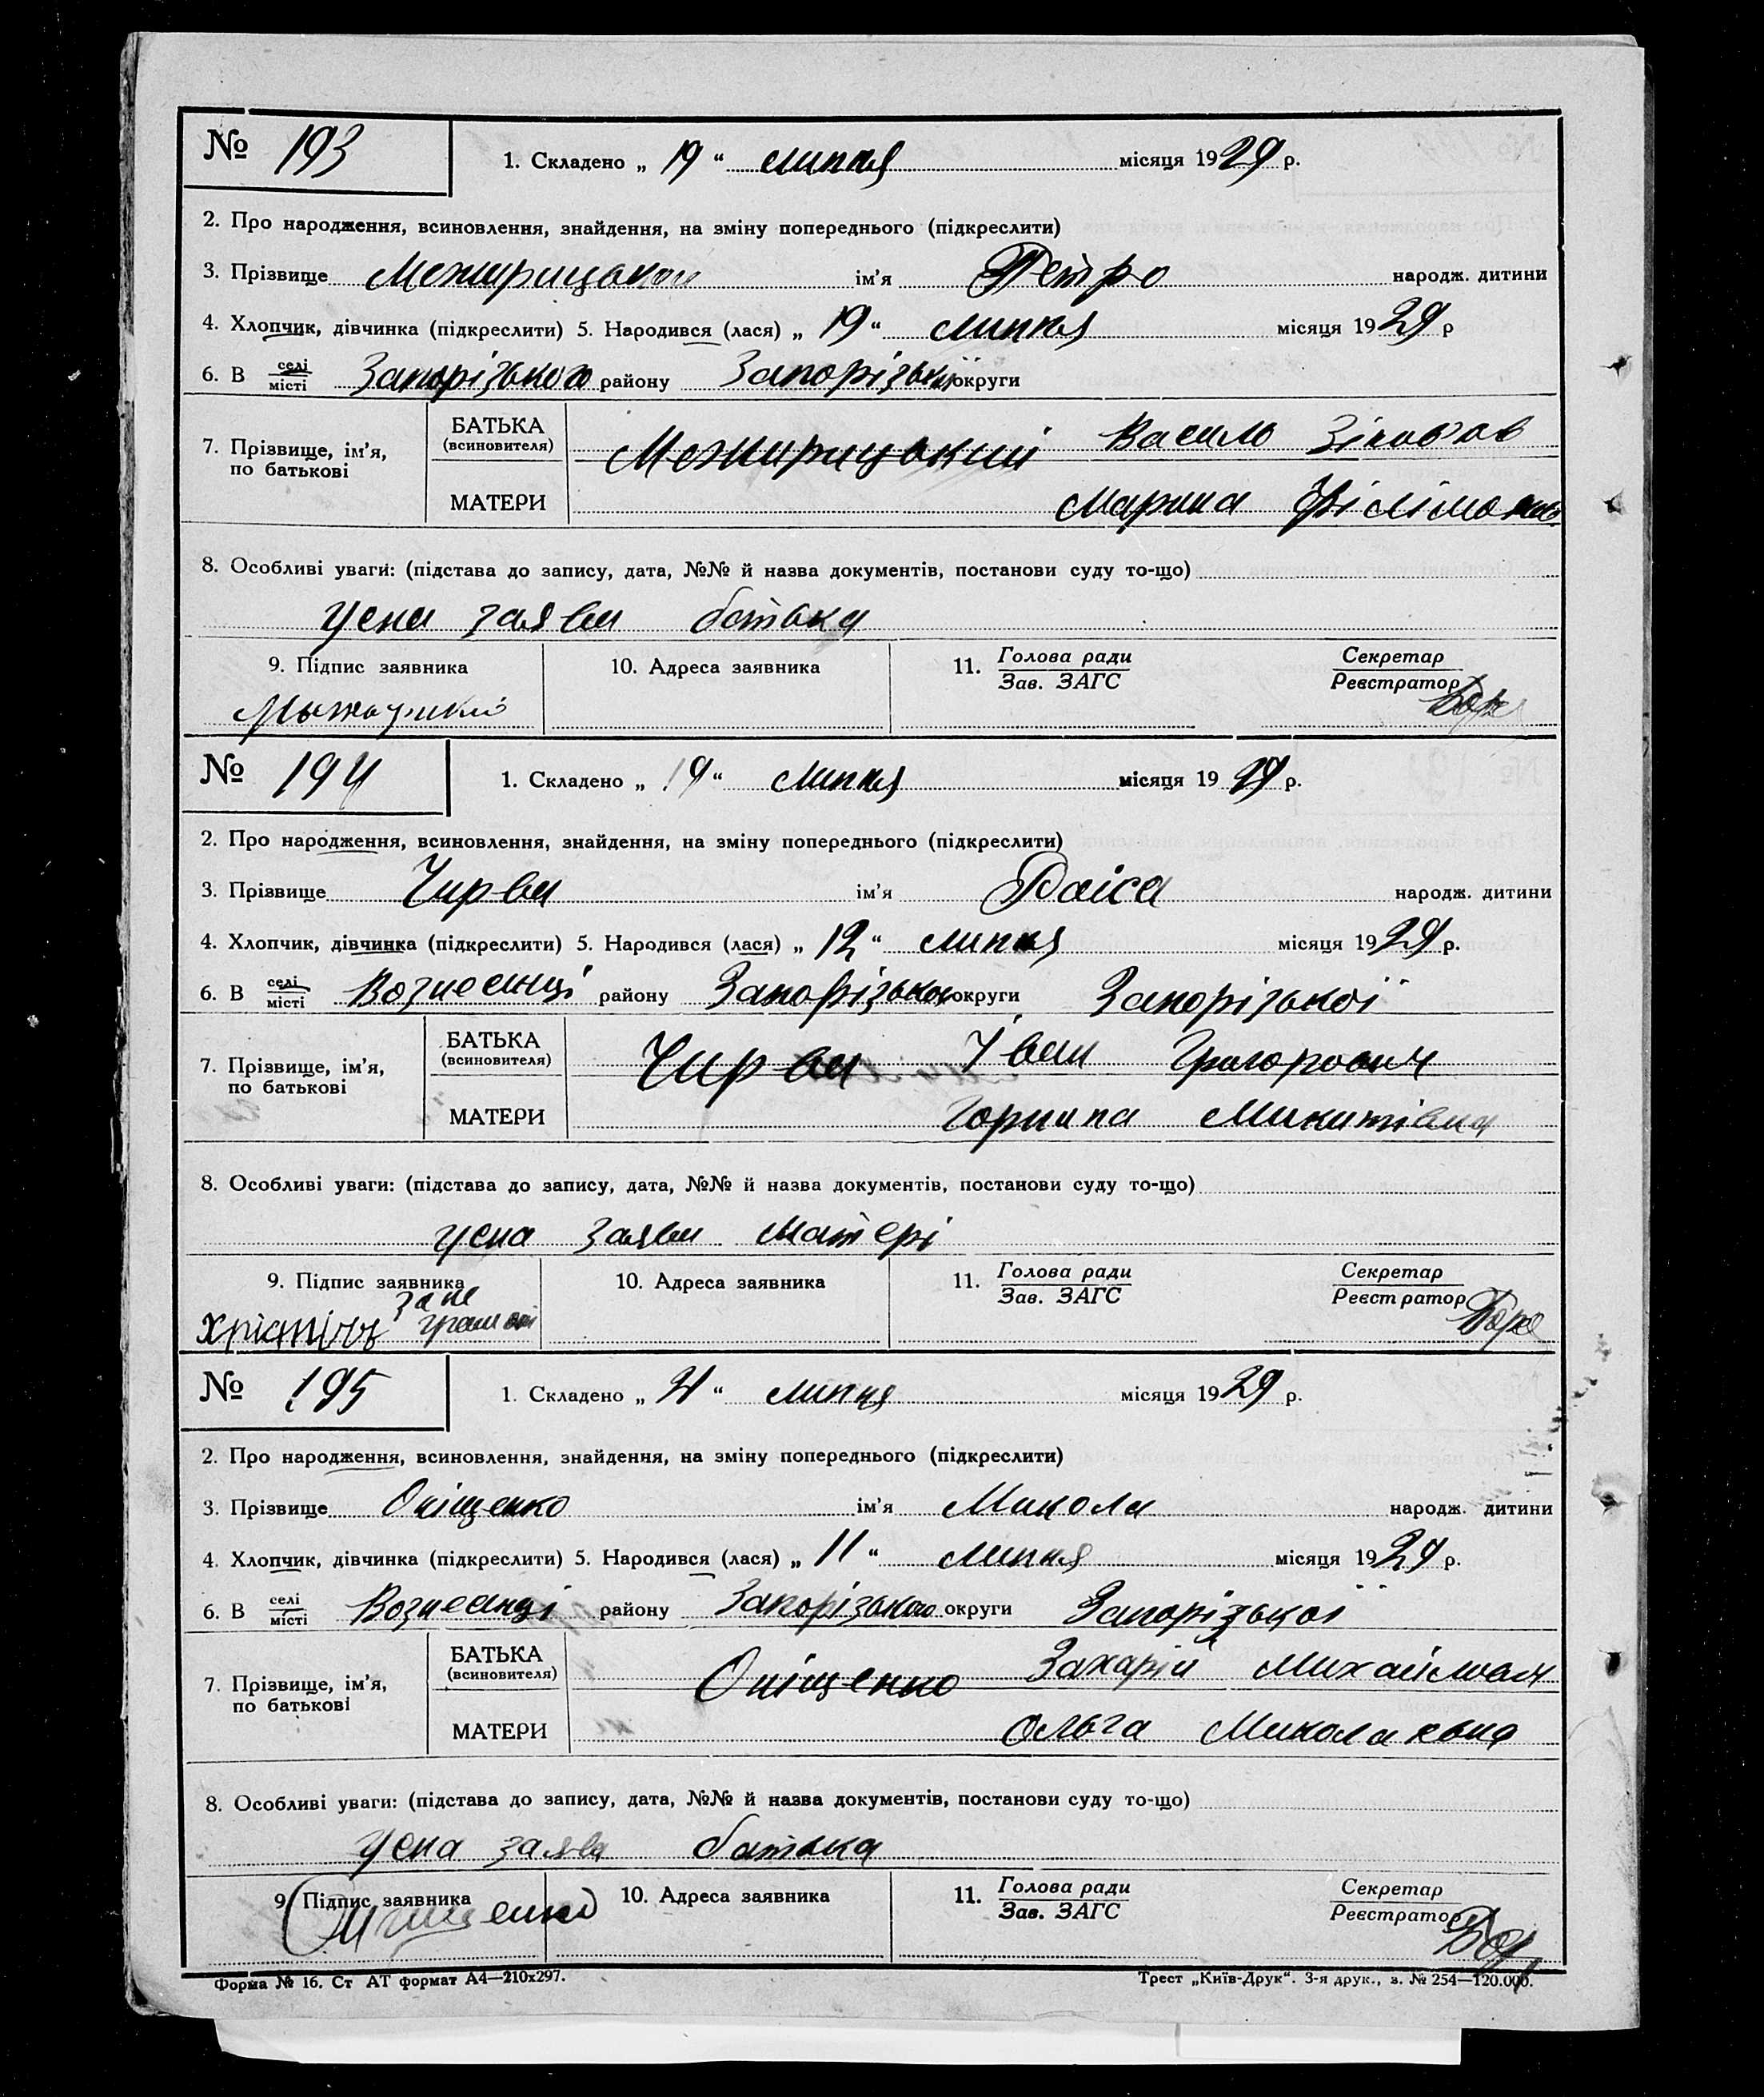 № 193 1. Складено „ 19 “ липня місяця 1929 р.
2. Про народження, всиновлення, знайдення, на зміну попереднього (підкреслити)
3. Прізвище Межирицький ім’я Петро народж. дитини
4. Хлопчик, дівчинка (підкреслити) 5. Народився (лася) „ 19 “ липня місяця 1929 р
6. В селі місті Запорізького району Запорізької округи
7. Прізвище, ім’я, по батькові
БАТЬКА (всиновителя) Межирицький Василь
МАТЕРИ Марина Філімонів
8. Особливі уваги: (підстава до запису, дата, №№ й назва документів, постанови суду то-що)
усна заява батька
9. Підпис заявника 10. Адреса заявника 11. Голова ради Зав. ЗАГС Секретар Реєстратор
№ 194 1. Складено „ 19 “ липня місяця 1929 р.
2. Про народження, всиновлення, знайдення, на зміну попереднього (підкреслити)
3. Прізвище Чирва ім’я Раіса народж. дитини
4. Хлопчик, дівчинка (підкреслити) 5. Народився (лася) „ 12 “ липня місяця 1929 р.
6. В селі місті Вознесенці району Запорізького округи Запорізької
7. Прізвище, ім’я, по батькові
БАТЬКА (всиновителя) Чирва Іван Григорович
МАТЕРИ Горпина Микитівна
8. Особливі уваги: (підстава до запису, дата, №№ й назва документів, постанови суду то-що)
усна заява матері
9. Підпис заявника 10. Адреса заявника 11. Голова ради Зав. ЗАГС Секретар Реєстратор
за не
№ 195 1. Складено „ 21 “ липня місяця 1929 р.
2. Про народження, всиновлення, знайдення, на зміну попереднього (підкреслити)
3. Прізвище Оніщенко ім’я Микола народж. дитини
4. Хлопчик, дівчинка (підкреслити) 5. Народився (лася) „ 11 “ липня місяця 1929 р.
6. В селі місті Вознесенці району Запорізького округи Запорізької
7. Прізвище, ім’я, по батькові
БАТЬКА (всиновителя) Оніщенко Захарій Михайлович
МАТЕРИ Ольга Миколаївна
8. Особливі уваги: (підстава до запису, дата, №№ й назва документів, постанови суду то-що)
усна заява батька
9. Підпис заявника 10. Адреса заявника 11. Голова ради Зав. ЗАГС Секретар Реєстратор
Форма № 16. Ст АТ формат А4—210х297. Трест „Київ-Друк“. 3-я друк., з. № 254—120.000.